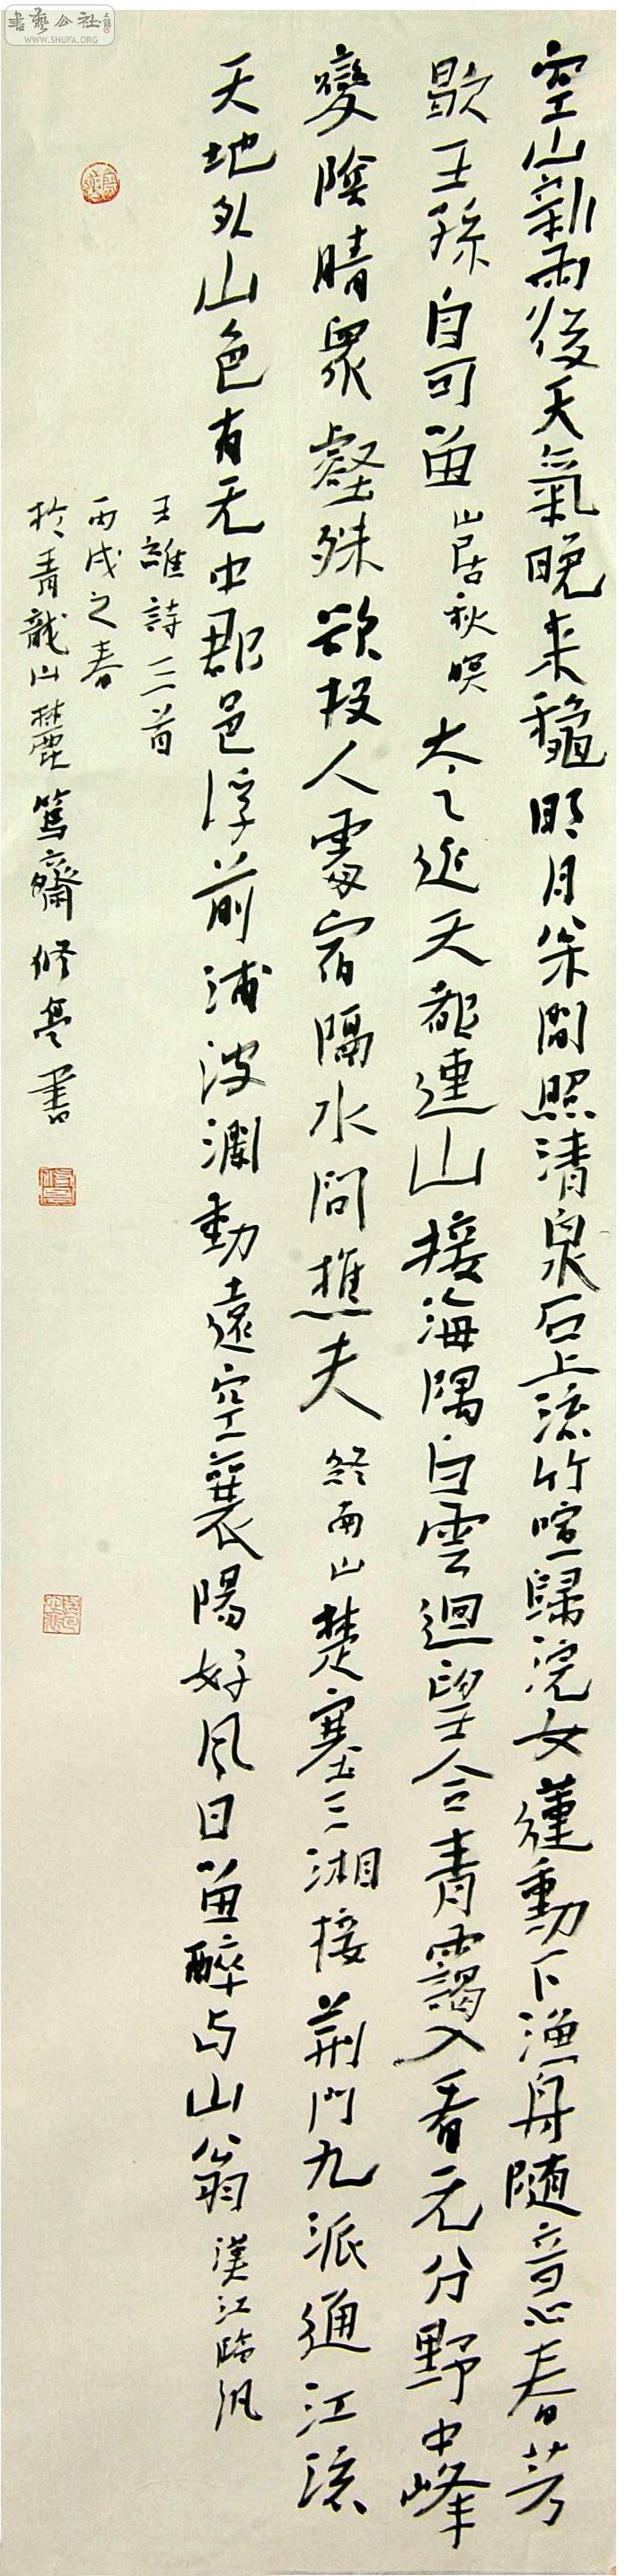 空山新雨後天氣晚来龝明月松間照清泉石上流竹喧歸浣女蓮動下漁舟随意春芳
歇王孫自可留山居秋暝太乙近天都連山接海隅白雲迴望合青靄入看无分野中峰
變陰晴眾壑殊欲投人處宿隔水問樵夫終南山楚塞三湘接荊門九派通江流
天地外山色有无中郡邑浮前浦波瀾動遠空襄陽好风日留醉与山翁漢江臨汎
王維詩三首
丙戌之春
於青龍山麓篤齋修亭書
書藝公社
WWW.SHUFA.ORG